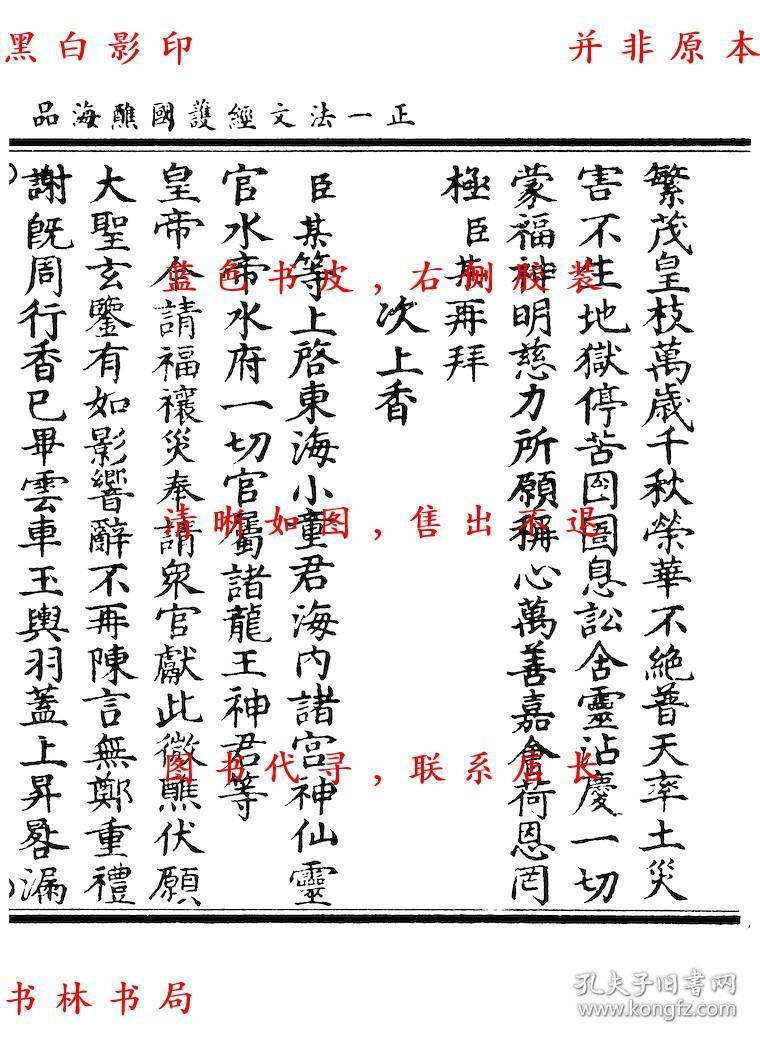 黑白影印
并非原本
正一法文經護國醮海品
繁茂皇枝萬歲千秋榮華不絕普天率土災
害不生地獄停苦囹圄息訟含靈沾慶一切
蒙福神明慈力所願稱心萬善嘉會荷恩罔
極臣某再拜
次上香
臣某等上啓東海小童君海內諸宮神仙靈
官水帝水府一切官屬諸龍王神君等
皇帝今請福禳災奉請衆官獻此微醮伏願
大聖玄鑒有如影響辭不再陳言無鄭重禮
謝既周行香已畢雲車玉輿羽蓋上昇晷漏
蓝色书皮，右侧胶装
清晰如图，售出不退
图书代寻，联系店长
书林书局
孔夫子旧书网
www.kongfz.com